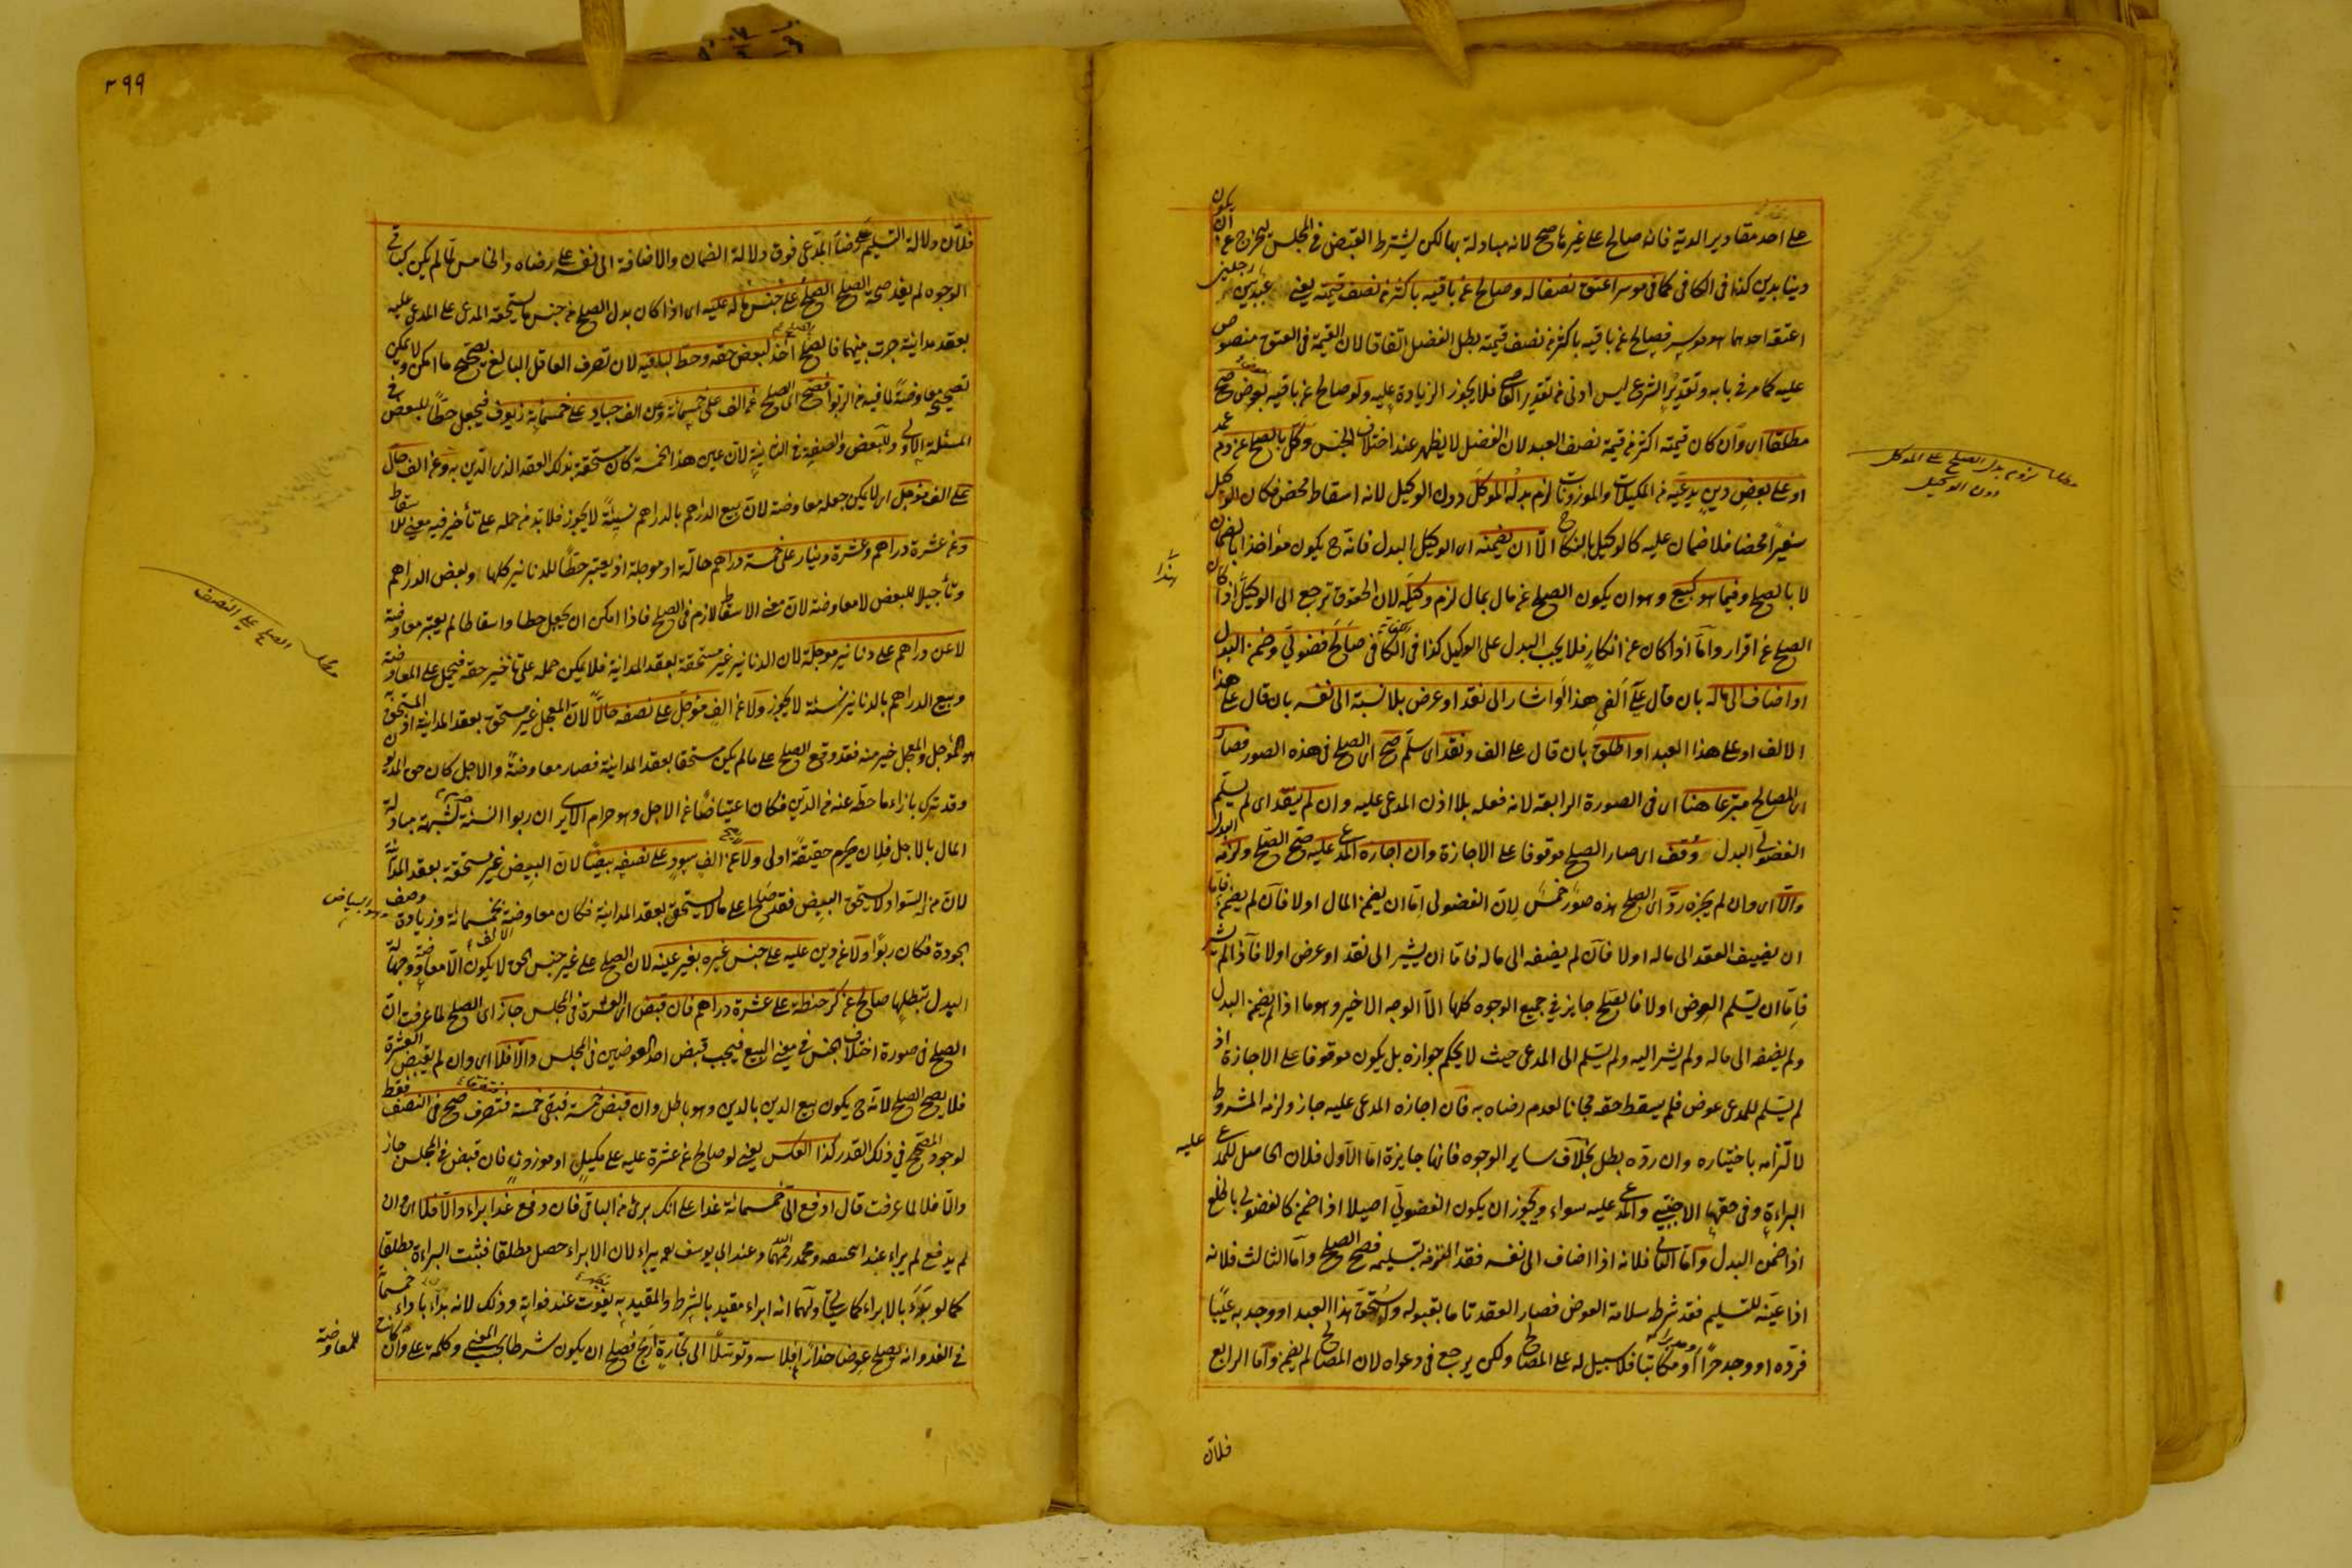 على احد مقادير الدية فانه صالح على غيرها صح لانه مبادلة بها لكن يشترط القبض في المجلس ليخرج عن ان يكون
دينا بدين كذا في الكافي كما في موسر اعتق نصفا له وصالح عن باقيه باكثر من نصف قيمته يعني عبد بين رجلين
اعتقه احدهما وهو موسر فصالح عن باقيه باكثر من نصف قيمته بطل الفضل اتفاقا لان القيمة في العتق منصوص
عليه كما مر في بابه وتقدير الشرع ليس ادنى من تقدير القاضي فلا يجوز الزيادة عليه ولو صالح عن باقيه بعوض صح
مطلقا اى وان كان قيمته اكثر من قيمة نصف العبد لان الفضل لا يظهر عند اختلاف الجنس وكل بالصلح عن دم عمد
او على بعض دين يدعيه من المكيلات والموزونات لزم بدله الموكل دون الوكيل لانه اسقاط محض فكان الوكيل
سفيرا محضا فلا ضمان عليه كالوكيل بالنكاح الا ان يضمنه اى الوكيل البدل فانه ح يكون مؤاخذا بالضمان
لا بالصلح وفيما هو كبيع وهو ان يكون الصلح عن مال بمال لزم وكيله لان الحقوق ترجع الى الوكيل هذا اذا كان
الصلح عن اقرار واما اذا كان عن انكار فلا يجب البدل على الوكيل كذا في الكافي صالح فضولي وضمن البدل
او اضاف الى ماله بان قال على الفي هذا او اشار الى نقد او عرض بلا نسبة الى نفسه بان قال على هذا
الالف او على هذا العبد او اطلق بان قال على الف ونقد اى سلم صح اى الصلح في هذه الصور فصار
اى المصالح متبرعا هنا اى في الصورة الرابعة لانه فعله بلا اذن المدعى عليه وان لم ينقد اى لم يسلم
الفضولي البدل وقف اى صار الصلح موقوفا على الاجازة وان اجازه المدعى عليه صح الصلح ولزمه البدل
والا اى وان لم يجزه رد اى الصلح هذه صور خمس لان الفضولي اما ان يضمن المال او لا فان لم يضمن فاما
ان يضيف العقد الى ماله او لا فان لم يضفه الى ماله فاما ان يشير الى نقد او عرض او لا فاذا لم يشر
فاما ان يسلم العوض او لا فالصلح جايز في جميع الوجوه كلها الا الوجه الاخير وهو ما اذا لم يضمن البدل
ولم يضفه الى ماله ولم يشر اليه ولم يسلم الى المدعى حيث لا يحكم بجوازه بل يكون موقوفا على الاجازة اذ
لم يسلم للمدعى عوض فلم يسقط حقه مجانا لعدم رضاه به فان اجازه المدعى عليه جاز ولزمه المشروط
لالتزامه باختياره وان رده بطل بخلاف ساير الوجوه فانها جايزة اما الاول فلان الحاصل للمدعى عليه
البراءة وفي حقها الاجنبي والمدعى عليه سواء ويجوز ان يكون الفضولي اصيلا اذا ضمن كالفضولي بالخلع
اذا ضمن البدل واما الثاني فلانه اذا اضاف الى نفسه فقد التزم تسليمه فصح الصلح واما الثالث فلانه
اذا عينه للتسليم فقد شرط سلامة العوض فصار العقد تاما بقبوله ولو استحق هذا العبد او وجد به عيبا
فرده او وجد حرا او مدبرا او مكاتبا فلا سبيل له على المصالح ولكن يرجع في دعواه لان المصالح لم يضمن واما الرابع
فلان
مطلب لزوم بدل الصلح على الموكل
دون الوكيل
هذا
٣٩٩
فلان دلالة التسليم على رضا المدعى فوق دلالة الضمان والاضافة الى نفسه على رضاه والخامس لما لم يكن كباقي
الوجوه لم يفد صحة الصلح الصلح على جنس ما له عليه اى اذا كان بدل الصلح من جنس ما يستحقه المدعى على المدعى عليه
بعقد مداينة جرت بينهما فالصلح اخذ لبعض حقه وحط لباقيه لان تصرف العاقل البالغ يصحح ما امكن ولا يمكن
تصحيحه معاوضة لما فيه من الربوا فصح اى الصلح عن الف على خمسمائة وعن الف جياد على خمسمائة زيوف فيجعل حطا للبعض في
المسئلة الاولى وللبعض والصفة في الثانية لان عين هذا الخمسمائة كان مستحقة بذلك العقد الذى الدين به وعن الف حال
على الف مؤجل اى لا يمكن جعله معاوضة لان بيع الدراهم بالدراهم نسيئة لا يجوز فلا بد من حمله على تأخير فيه معنى الاسقاط
وعن عشرة دراهم وعشرة دنيار على خمسة دراهم حالة او موجلة اذ يعتبر حطا للدنانير كلها وبعض الدراهم
وتأجيلا للبعض لا معاوضة لان معنى الاسقاط لازم في الصلح فاذا امكن ان يجعل حطا واسقاطا لم يعتبر معاوضة
لا عن دراهم على دنانير موجلة لان الدنانير غير مستحقة بعقد المداينة فلا يمكن حمله على تأخير حقه فيحمل على المعاوضة
وبيع الدراهم بالدنانير نسئة لا يجوز ولا عن الف مؤجل على نصفه حالا لان المعجل غير مستحق بعقد المداينة اذ المستحق
هو المؤجل والمعجل خير منه فقد وقع الصلح على ما لم يكن مستحقا بعقد المداينة فصار معاوضة والاجل كان حق المديون
وقد تركه بازاء ما حطه عنه من الدين فكان اعتياضا عن الاجل وهو حرام الا يرى ان ربوا النسئة لشبهة مبادلة
المال بالاجل فلان يحرم حقيقة اولى ولا عن الف سود على نصفه بيضا لان البيض غير مستحقة بعقد المداينة
لان من له السود لا يستحق البيض فقد صالح على ما لا يستحق بعقد المداينة فكان معاوضة الالف بخمسمائة وزيادة وصف
الجودة فكان ربوا ولا عن دين عليه على جنس غيره بغير عينه لان الصلح على غير جنس الحق لا يكون الا معاوضة وجهالة
البدل تبطلها صالح عن كر حنطة على عشرة دراهم فان قبض اى العشرة في المجلس جاز اى الصلح لما عرفت ان
الصلح في صورة اختلاف الجنس في معنى البيع فيجب قبض احد العوضين في المجلس والا فلا اى وان لم يقبض العشرة
فلا يصح الصلح لانه ح يكون بيع الدين بالدين وهو باطل وان قبض خمسة فبقي خمسة فتفرقا صح في النصف فقط
لوجود المصحح في ذلك القدر كذا العكس يعني لو صالح عن عشرة عليه على مكيل او موزون فان قبض في المجلس جاز
والا فلا لما عرفت قال ادفع الى خمسمائة غدا على انك برئ من الباقي فان دفع غدا براء والا فلا اى وان
لم يدفع لم يبراء عند ومحمد رحمهما الله وعند ابي يوسف يبراء لان الابراء حصل مطلقا فثبت البراءة مطلقا
كما لو بدء بالابراء كما سيجئ ولهما انه ابراء مقيد بالشرط والمقيد به يفوت عند فواته وذلك لانه بدأ باداء خمسمائة
في الغد وانه يصلح عوضا حذار افلاسه وتوسلا الى تجارة اربح فصلح ان يكون شرطا بحسب المعنى وكلمة على وان كانت
للمعاوضة
مطلب الصلح على النصف